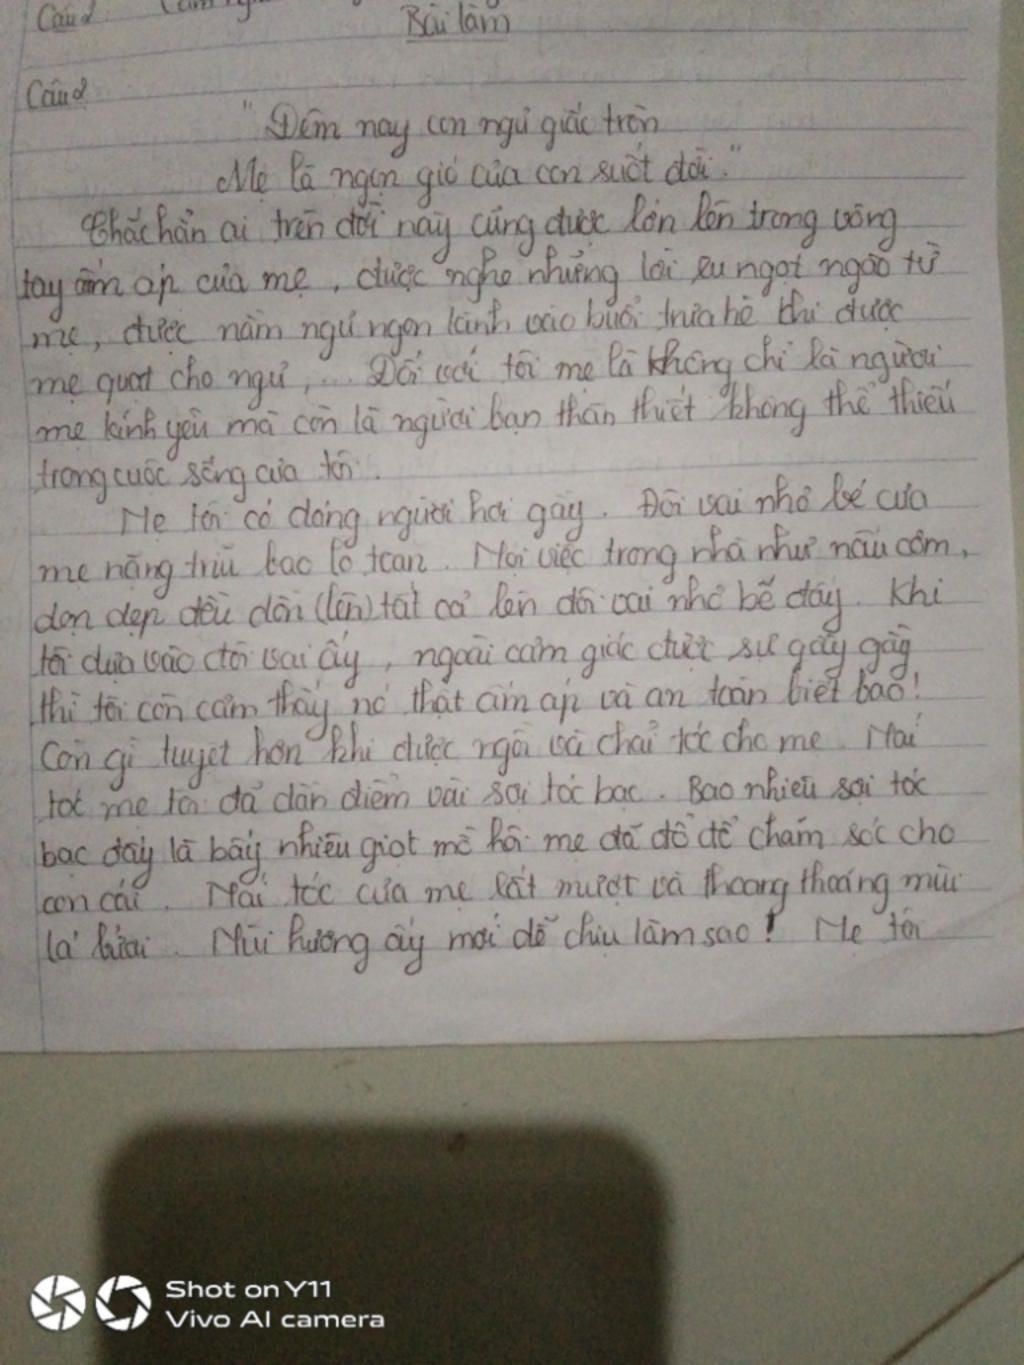 Câu 2
Bài làm
Câu 2
"Đêm nay con ngủ giấc tròn
Mẹ là ngọn gió của con suốt đời."
Chắc hẳn ai trên đời này cũng được lớn lên trong vòng
tay ấm áp của mẹ, được nghe những lời ru ngọt ngào từ
mẹ, được nằm ngủ ngon lành vào buổi trưa hè khi được
mẹ quạt cho ngủ, ... Đối với tôi mẹ là không chỉ là người
mẹ kính yêu mà còn là người bạn thân thiết không thể thiếu
trong cuộc sống của tôi.
Mẹ tôi có dáng người hơi gầy. Đôi vai nhỏ bé của
mẹ nặng trĩu bao lo toan. Mọi việc trong nhà như nấu cơm,
dọn dẹp đều dồn (lên) tất cả lên đôi vai nhỏ bé đấy. Khi
tôi dựa vào đôi vai ấy, ngoài cảm giác được sự gầy gầy
thì tôi còn cảm thấy nó thật ấm áp và an toàn biết bao!
Còn gì tuyệt hơn khi được ngồi và chải tóc cho mẹ. Mái
tóc mẹ tôi đã dần điểm vài sợi tóc bạc. Bao nhiêu sợi tóc
bạc đấy là bấy nhiêu giọt mồ hôi mẹ đã đổ để chăm sóc cho
con cái. Mái tóc của mẹ rất mượt và thoang thoảng mùi
lá bưởi. Mùi hương ấy mới dễ chịu làm sao! Mẹ tôi
Shot on Y11
Vivo AI camera